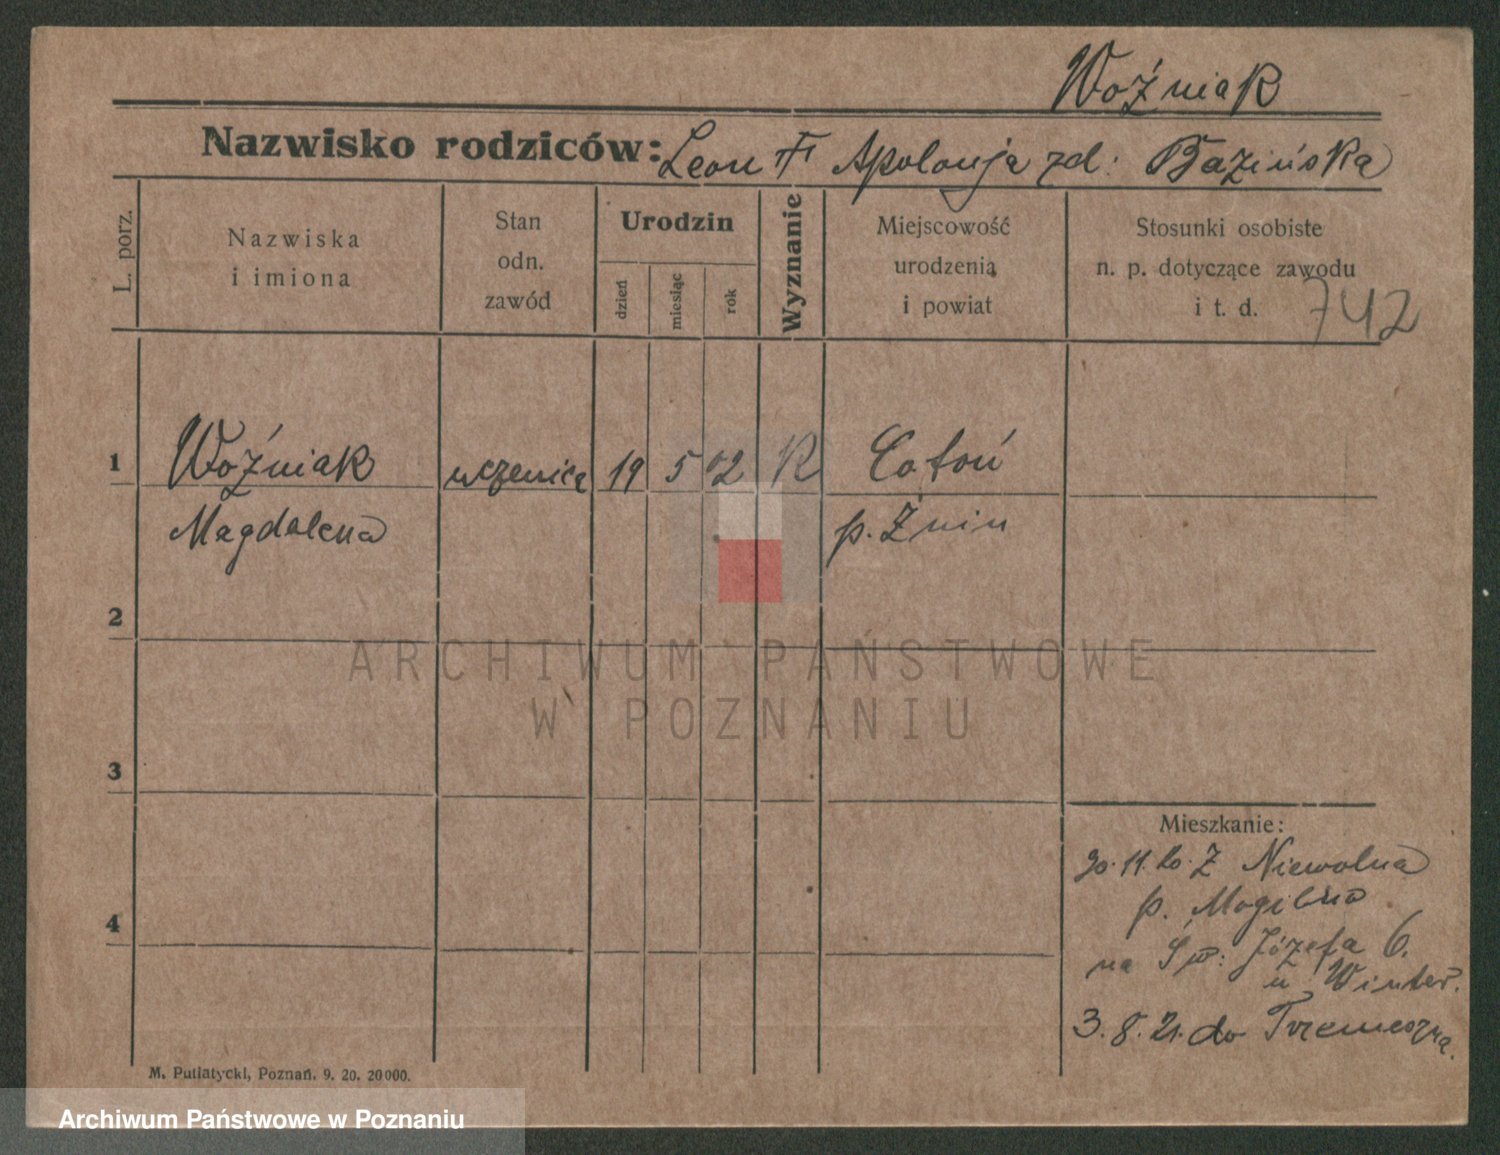 Woźniak
Nazwisko rodziców: Leon Apolonja zd: Bazińska
L. porz.
Nazwiska
i imiona
Stan
odn.
zawód
Urodzin
dzień
miesiąc
rok
Wyznanie
Miejscowość
urodzenia
i powiat
Stosunki osobiste
n. p. dotyczące zawodu
i t. d.
742
1 Woźniak uczenica 19 5 02 K Cotoń
Magdalena p. Żnin
2
3
4
ARCHIWUM PAŃSTWOWE
W POZNANIU
Mieszkanie:
30.11.20. Z Niewolna
p. Mogilno
na Św: Józefa 6.
u Winter.
3.8.21. do Trzemeszna.
M. Putiatycki, Poznań. 9. 20. 20000.
Archiwum Państwowe w Poznaniu